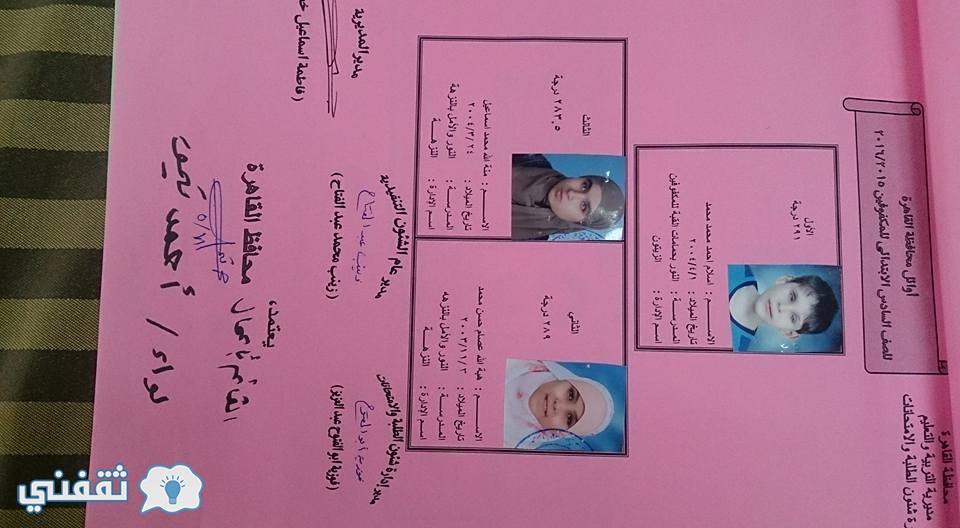 محافظة القاهرة
مديرية التربية والتعليم
شئون الطلبة والامتحانات
أوائل محافظة القاهرة
للصف السادس الابتدائي للمكفوفين ٢٠١٦/٢٠١٥
الأول
٢٩١ درجة
الاســـم : اسلام احمد محمد محمد
تاريخ الميلاد : ٢٠٠٤/٤/١
المدرسـة : النور بحمامات القبة للمكفوفين
اسم الإدارة : الزيتون
الثاني
٢٨٩ درجة
الاســـم : هبة الله عصام حسن محمد
تاريخ الميلاد : ٢٠٠٣/١١/٣
المدرسـة : النور والأمل بالنزهه
اسم الإدارة : النزهـــة
الثالث
٢٨٣.٥ درجة
الاســـم : منة الله محمد اسماعيل
تاريخ الميلاد : ٢٠٠٤/٣/٢٤
المدرسـة : النور والأمل بالنزهة
اسم الإدارة : النزهـــة
مدير إدارة شئون الطلبة والامتحانات
(فوزية أبو الفتوح عبد العزيز)
مدير عام الشئون التنفيذية
زينب عبد الفتاح
(زينب محمد عبد الفتاح)
مدير المديرية
(فاطمة اسماعيل
يعتمد،
القائم بأعمال محافظ القاهرة
لواء / أحمد
ثقفني